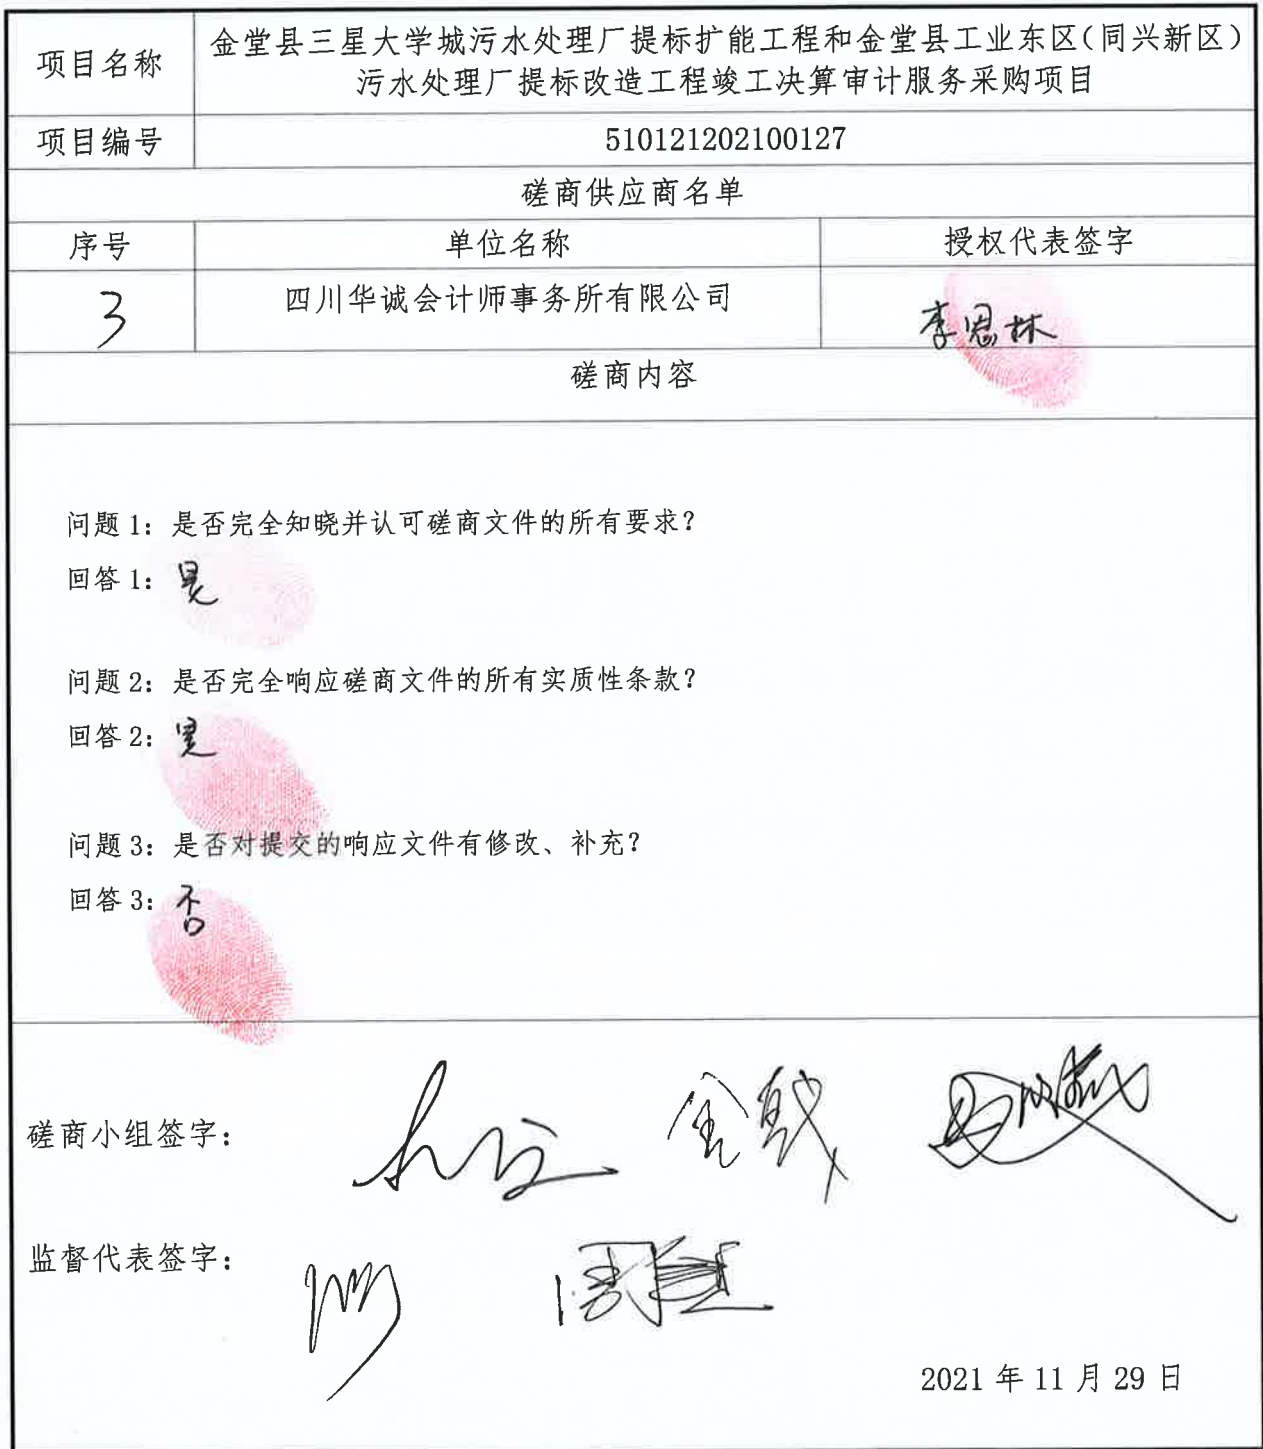 项目名称
金堂县三星大学城污水处理厂提标扩能工程和金堂县工业东区(同兴新区)
污水处理厂提标改造工程竣工决算审计服务采购项目
项目编号 510121202100127
磋商供应商名单
序号 单位名称 授权代表签字
3 四川华诚会计师事务所有限公司 李恩林
磋商内容
问题1：是否完全知晓并认可磋商文件的所有要求？
回答1：是
问题2：是否完全响应磋商文件的所有实质性条款？
回答2：是
问题3：是否对提交的响应文件有修改、补充？
回答3：否
磋商小组签字：
监督代表签字：
2021年11月29日